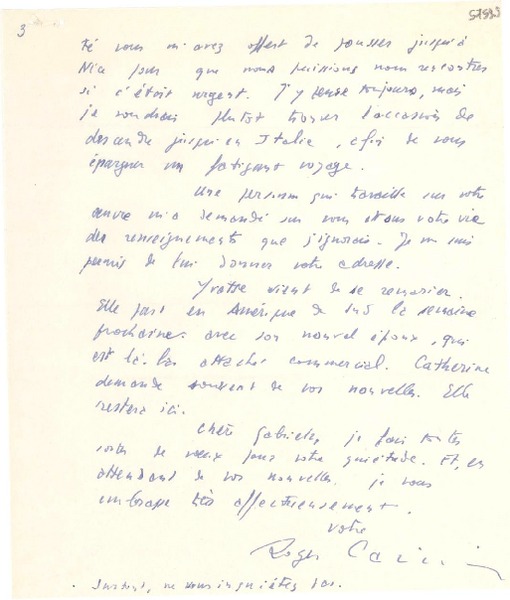 3
57593
té vous m'avez offert de pousser jusqu'à
Nice pour que nous puissions nous rencontrer
si c'était urgent. J'y pense toujours, mais
je voudrais plutôt trouver l'occasion de
descendre jusqu'en Italie, afin de vous
épargner un fatigant voyage.
Une personne qui travaille sur votre
œuvre m'a demandé sur vous et sur votre vie
des renseignements que j'ignorais. Je me suis
permis de lui donner votre adresse.
Yvette vient de se remarier.
Elle part en Amérique du Sud la semaine
prochaine avec son nouvel époux, qui
est là-bas attaché commercial. Catherine
demande souvent de vos nouvelles. Elle
restera ici.
Chère Gabriele, je fais toutes
sortes de vœux pour votre quiétude. Et, en
attendant de vos nouvelles, je vous
embrasse très affectueusement.
votre
Roger
Surtout, ne vous inquiétez pas.